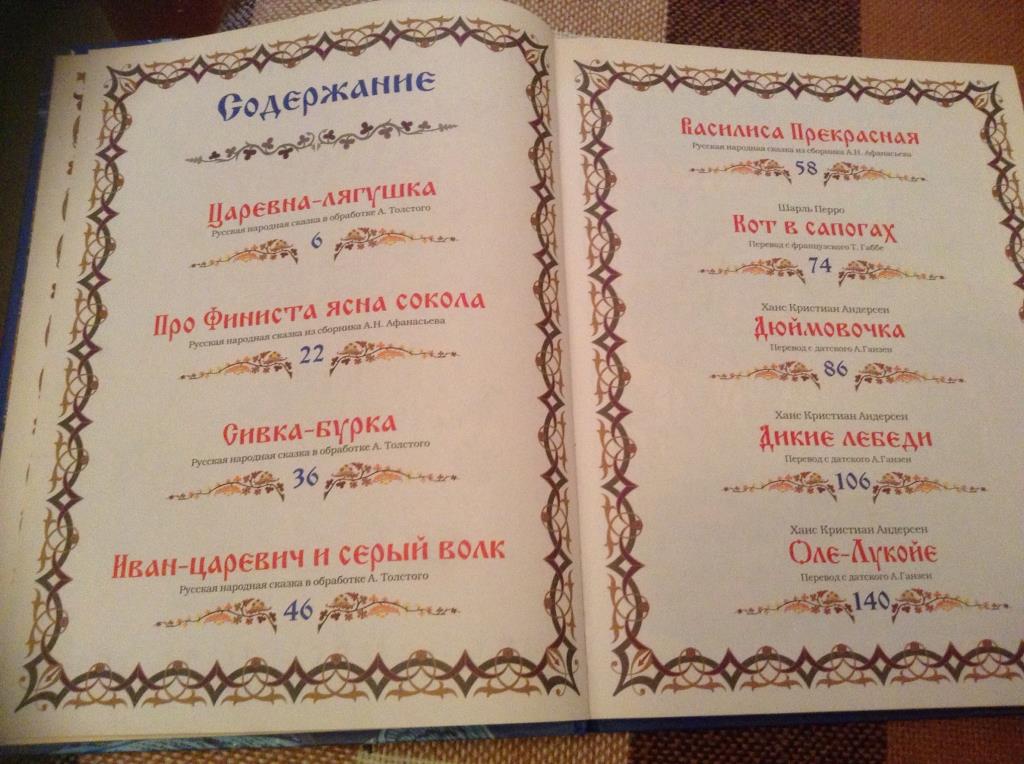 Содержание
Царевна-лягушка
Русская народная сказка в обработке А. Толстого
6
Про Финиста ясна сокола
Русская народная сказка из сборника А.Н. Афанасьева
22
Сивка-бурка
Русская народная сказка в обработке А. Толстого
36
Иван-царевич и серый волк
Русская народная сказка в обработке А. Толстого
46
Василиса Прекрасная
Русская народная сказка из сборника А.Н. Афанасьева
58
Шарль Перро
Кот в сапогах
Перевод с французского Т. Габбе
74
Ханс Кристиан Андерсен
Дюймовочка
Перевод с датского А.Ганзен
86
Ханс Кристиан Андерсен
Дикие лебеди
Перевод с датского А.Ганзен
106
Ханс Кристиан Андерсен
Оле-Лукойе
Перевод с датского А.Ганзен
140